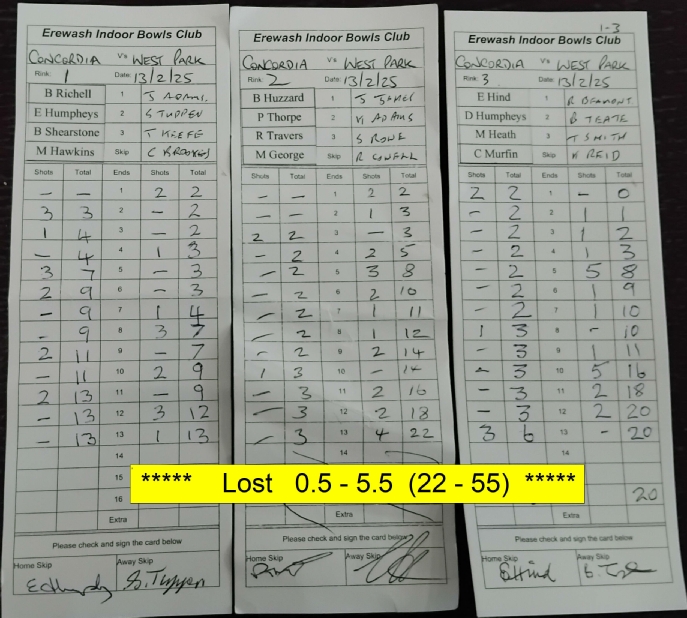 Erewash Indoor Bowls Club
CONCORDIA V's WEST PARK
Rink: 1 Date: 13/2/25
B Richell 1 J ADAMS.
E Humpheys 2 S TUPPEN
B Shearstone 3 T KEEFE
M Hawkins Skip C BROOKES
Shots Total Ends Shots Total
– – 1 2 2
3 3 2 – 2
1 4 3 – 2
– 4 4 1 3
3 7 5 – 3
2 9 6 – 3
– 9 7 1 4
– 9 8 3 7
2 11 9 – 7
– 11 10 2 9
2 13 11 – 9
– 13 12 3 12
– 13 13 1 13
14
15
16
Extra
Please check and sign the card below
Home Skip Away Skip
S. Tuppen
Erewash Indoor Bowls Club
CONCORDIA V's WEST PARK
Rink: 2 Date: 13/2/25
B Huzzard 1 J
P Thorpe 2 K ADAMS
R Travers 3 S ROWE
M George Skip R COWELL
Shots Total Ends Shots Total
– – 1 2 2
– – 2 1 3
2 2 3 – 3
– 2 4 2 5
– 2 5 3 8
– 2 6 2 10
– 2 7 1 11
– 2 8 1 12
– 2 9 2 14
1 3 10 – 14
– 3 11 2 16
– 3 12 2 18
– 3 13 4 22
14
Extra
Please check and sign the card below
Home Skip Away Skip
1-3
Erewash Indoor Bowls Club
CONCORDIA V's WEST PARK
Rink: 3 Date: 13/2/25
E Hind 1 R BEAMONT.
D Humpheys 2 B TEATE
M Heath 3 T SMITH
C Murfin Skip K REID
Shots Total Ends Shots Total
2 2 1 – 0
– 2 2 1 1
– 2 3 1 2
– 2 4 1 3
– 2 5 5 8
– 2 6 1 9
– 2 7 1 10
1 3 8 – 10
– 3 9 1 11
– 3 10 5 16
– 3 11 2 18
– 3 12 2 20
3 6 13 – 20
14
20
Extra
Please check and sign the card below
Home Skip Away Skip
EHind
***** Lost 0.5 - 5.5 (22 - 55) *****